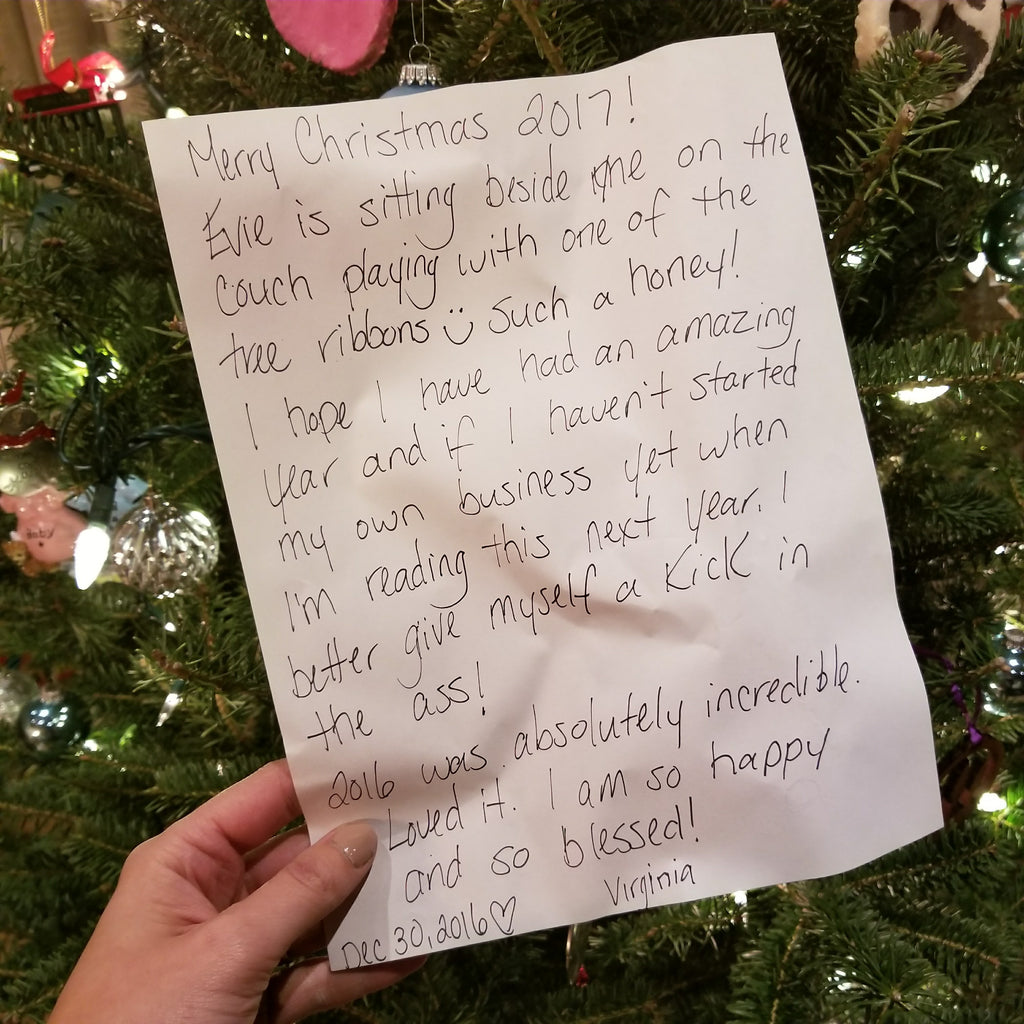 Merry Christmas 2017!
Evie is sitting beside me on the
couch playing with one of the
tree ribbons such a honey!
I hope I have had an amazing
year and if I haven't started
my own business yet when
I'm reading this next year. I
better give myself a kick in
the ass!
2016 was absolutely incredible.
Loved it. I am so happy
and so blessed!
Virginia
Dec 30, 2016♡
baby